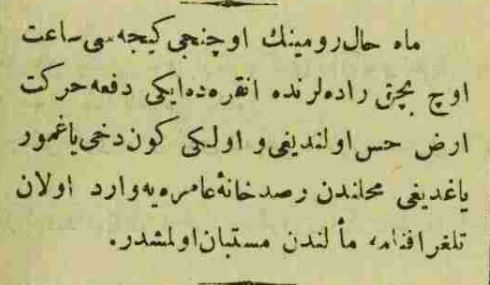 ماه حال رومينك اوچنجى كيجه سى ساعت
اوچ بچق راده لرنده انقره ده ايكى دفعه حركت
ارض حس اولنديغى و اولكى كون دخى ياغمور
ياغديغى محلندن رصدخانهٔ عامره يه وارد اولان
تلغرافنامه مألندن مستبان اولمشدر.